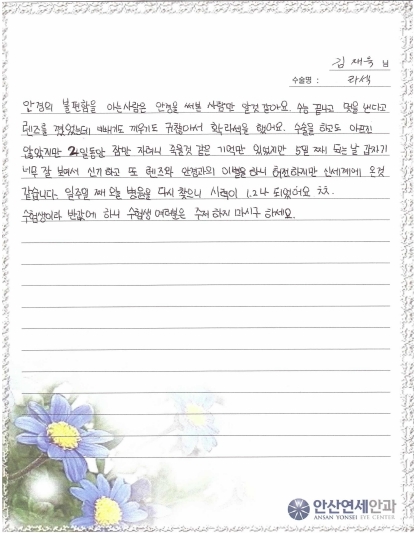 김재욱 님
수술명 : 라섹
안경의 불편함을 아는사람은 안경을 써본 사람만 알것 같아요. 수능 끝나고 멋을 낸다고
렌즈를 꼈었는데 빼기도 끼우기도 귀찮아서 확 라섹을 했어요. 수술을 하고도 아프진
않았지만 2일동안 잠만 자려니 죽을것 같은 기억만 있었지만 5일 째 되는 날 갑자기
너무 잘 보여서 신기하고 또 렌즈와 안경과의 이별을 하니 허전하지만 신세계에 온것
같습니다. 일주일 째 오늘 병원을 다시 찾으니 시력이 1.2나 되었어요 ㅊㅊ.
수험생이라 반값에 하니 수험생 여러분은 주저 하지 마시구 하세요.
안산연세안과
ANSAN YONSEI EYE CENTER